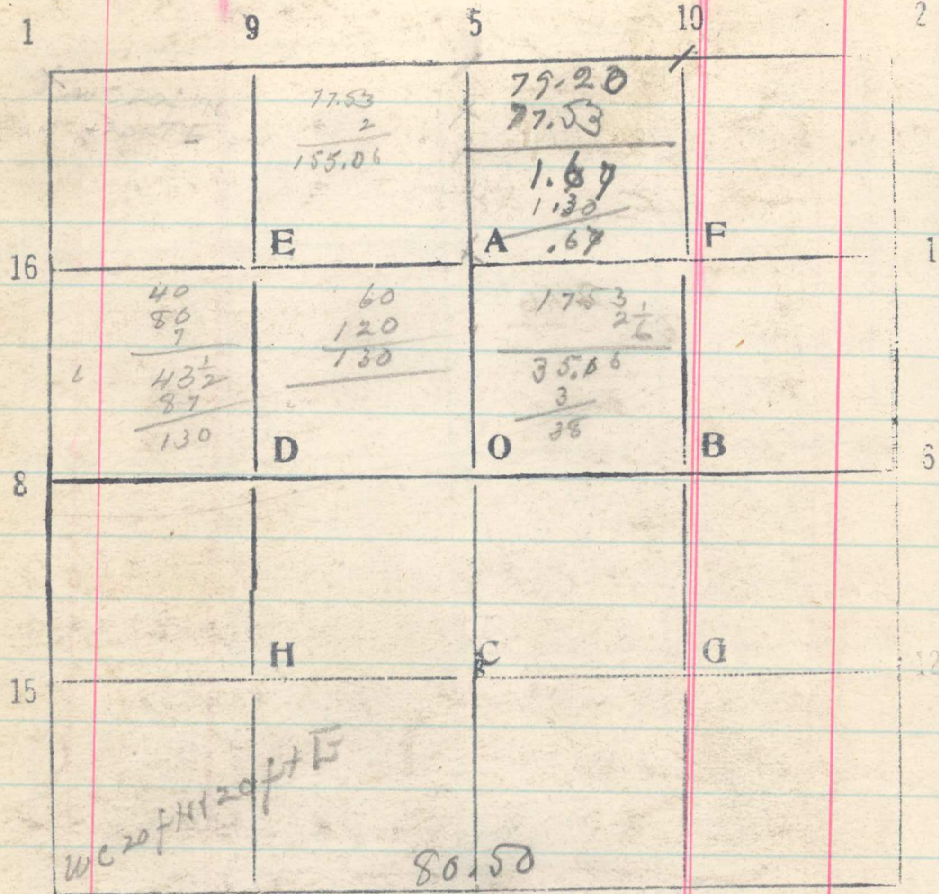 1 9 5 10 2
77.53
2
155.06
79.20
77.53
1.67
1.30
.67
E A F
16 1
40
80
7
43½
87
130
60
120
130
1753
2 1/6
35.06
3
38
D O B
8 6
H C G
15 12
WC 20 f N & 20 ft E
80.50